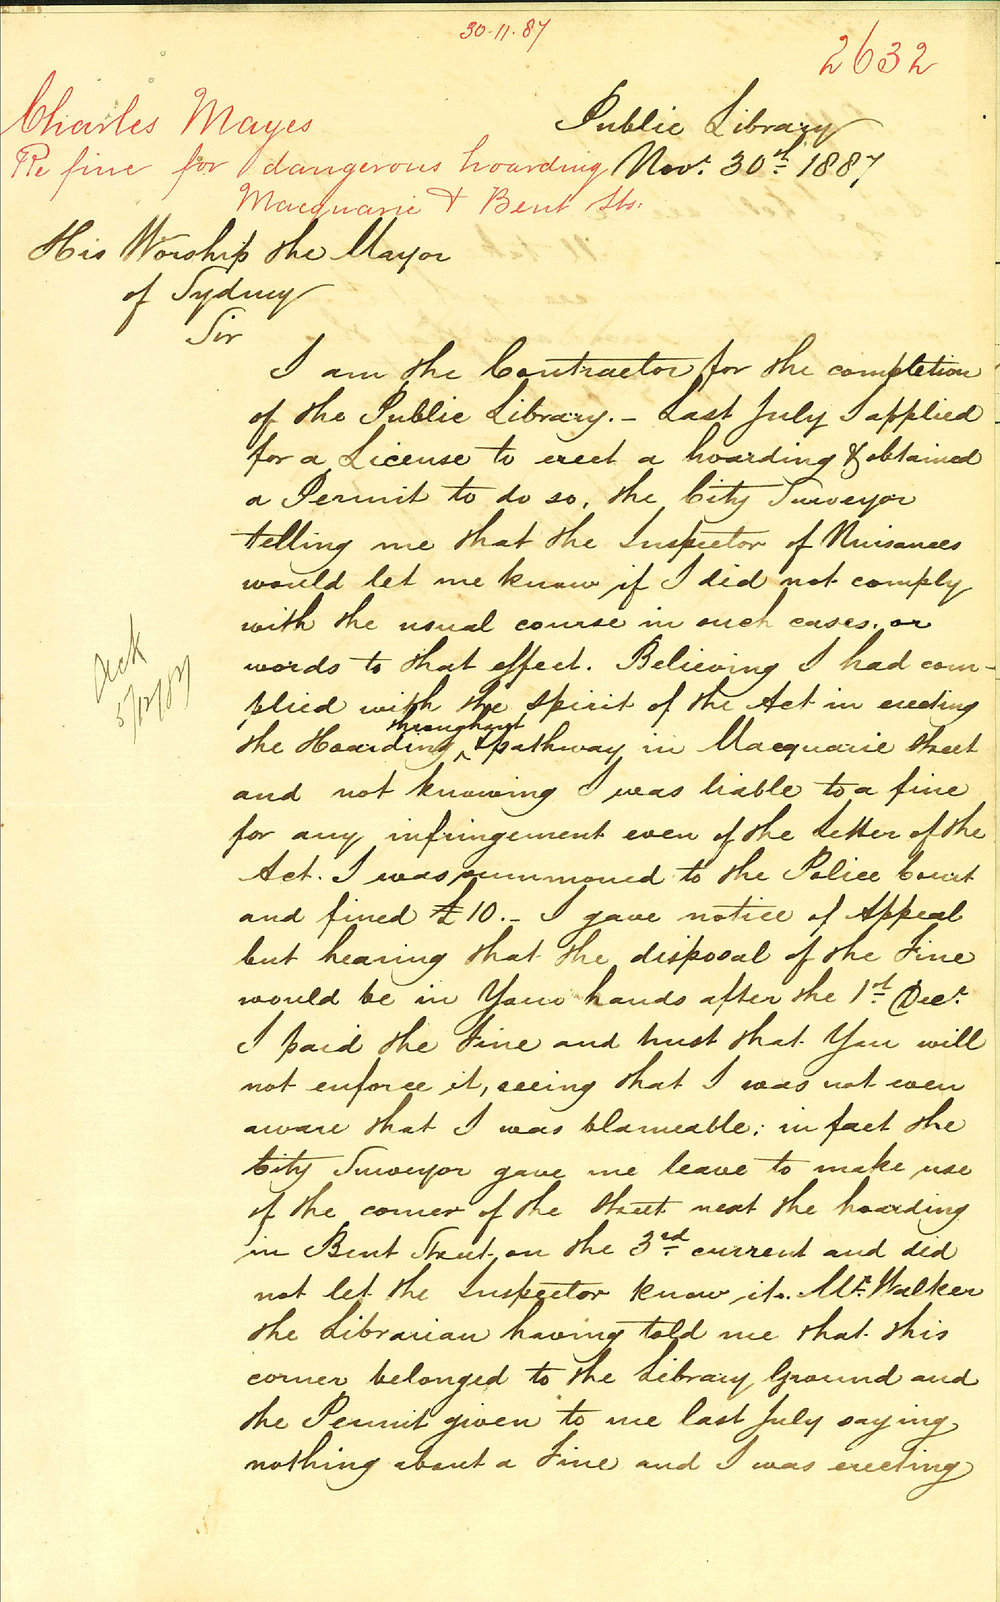 30.11.87
2632
Charles Mayes
Re fine for dangerous hoarding
Macquarie & Bent Sts.
Public Library
Nov.r 30th 1887
His Worship the Mayor
of Sydney
Sir
I am the Contractor for the completion
of the Public Library. – Last July I applied
for a License to erect a hoarding & obtained
a Permit to do so, the City Surveyor
telling me that the Inspector of Nuisances
would let me know if I did not comply
with the usual course in such cases. or
words to that effect. Believing I had com-
plied with the spirit of the Act in erecting
the Hoarding ^ throughout pathway in Macquarie Street
and not knowing I was liable to a fine
for any infringement even of the Letter of the
Act. I was summoned to the Police Court
and fined £10. – I gave notice of Appeal
but hearing that the disposal of the Fine
would be in Your hands after the 1st Decr
I paid the Fine and trust that You will
not enforce it, seeing that I was not even
aware that I was blameable; in fact the
City Surveyor gave me leave to make use
of the corner of the Street next the hoarding
in Bent Street, on the 3rd current and did
not let the Inspector know it. Mr. Walker
the Librarian having told me that this
corner belonged to the Library Ground and
the Permit given to me last July saying
nothing about a Fine and I was erecting
5/12/87